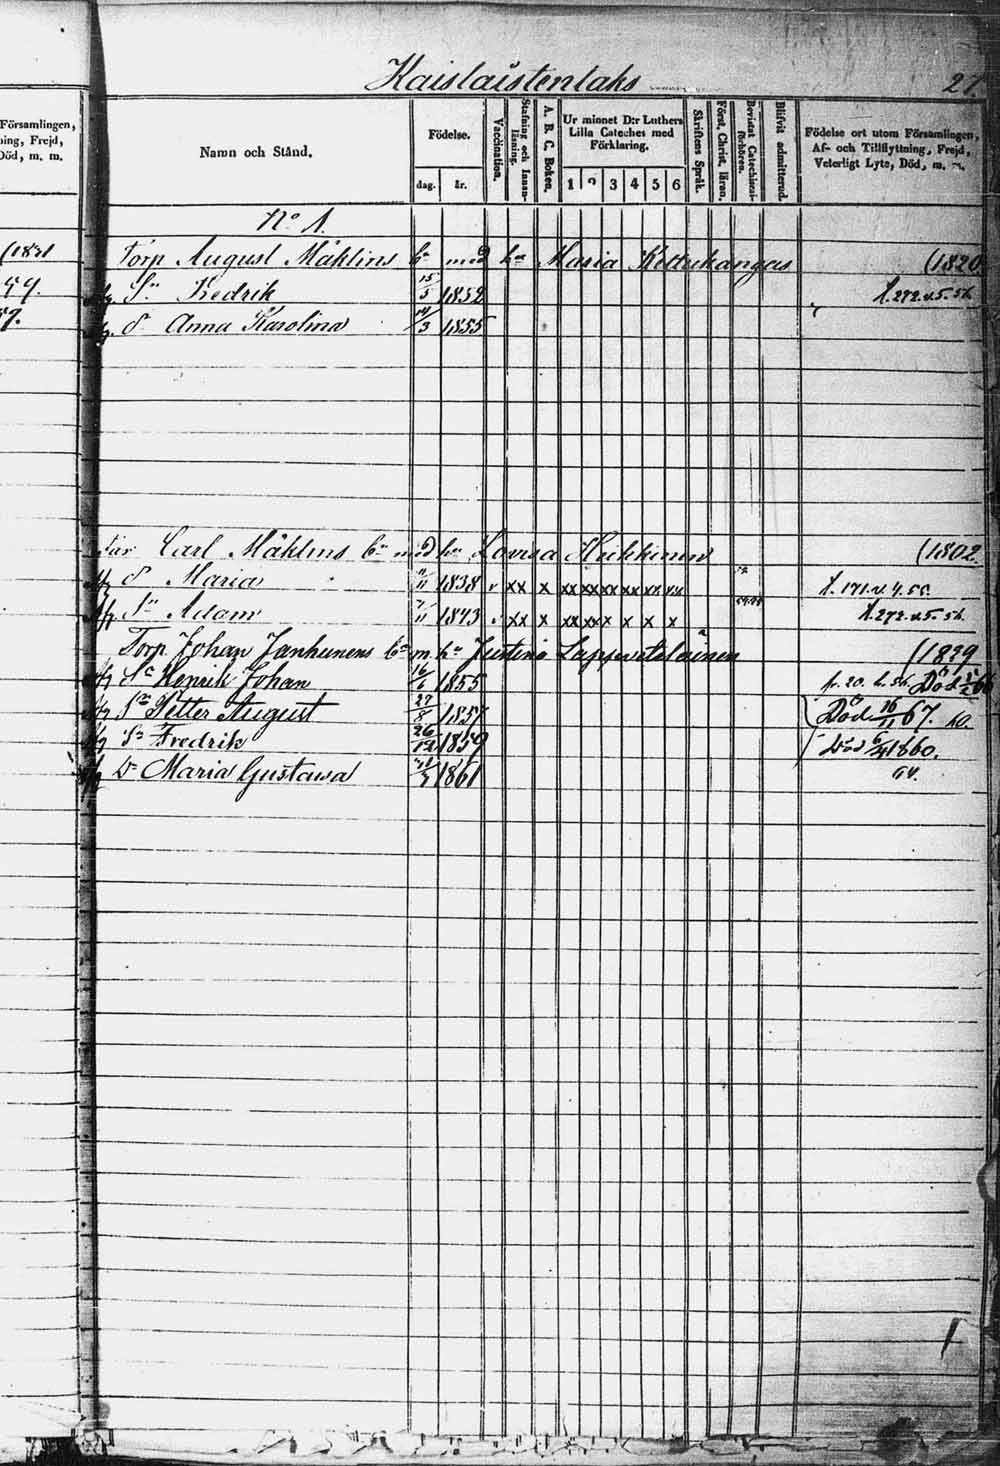 Kaislaistenlaks
27
Församlingen,
ning, Frejd,
Död, m. m.
Namn och Stånd.
Födelse.
dag. år.
Vaccination.
Stafning och Innanläsning.
A. B. C. Boken.
Ur minnet D:r Luthers
Lilla Cateches med
Förklaring.
1 2 3 4 5 6
Skriftens Språk.
Först. Christ. läran.
Bevistat Catechisationförhören.
Blifvit admitterad.
Födelse ort utom Församlingen,
Af- och Tillflyttning, Frejd,
Veterligt Lyte, Död, m. m.
No 1.
Torp August Mäklins bn med hu Maria Kettukangas (1820
Sn Fredrik 15/5 1852 f. 272. v. 5. 56.
d Anna Karolina 14/3 1855
Carl Mäklins bn med hu Lovisa Heikkinen (1802.
d Maria 11/11 1838 v xx x xx xx xx xx xx xx
Sn Adam 7/11 1843 v xx x xx xx x x x x f. 272. v. 5. 56.
Torp Johan Janhunens bn m. hu Justina Lappvetelainen (1829
Sn Henrik Johan 16/6 1855 Död
Sn Petter August 27/8 1857 Död 16/11 67.
Sn Fredrik 26/12 1859 Död 6/4 1860.
Dr Maria Gustawa 1861